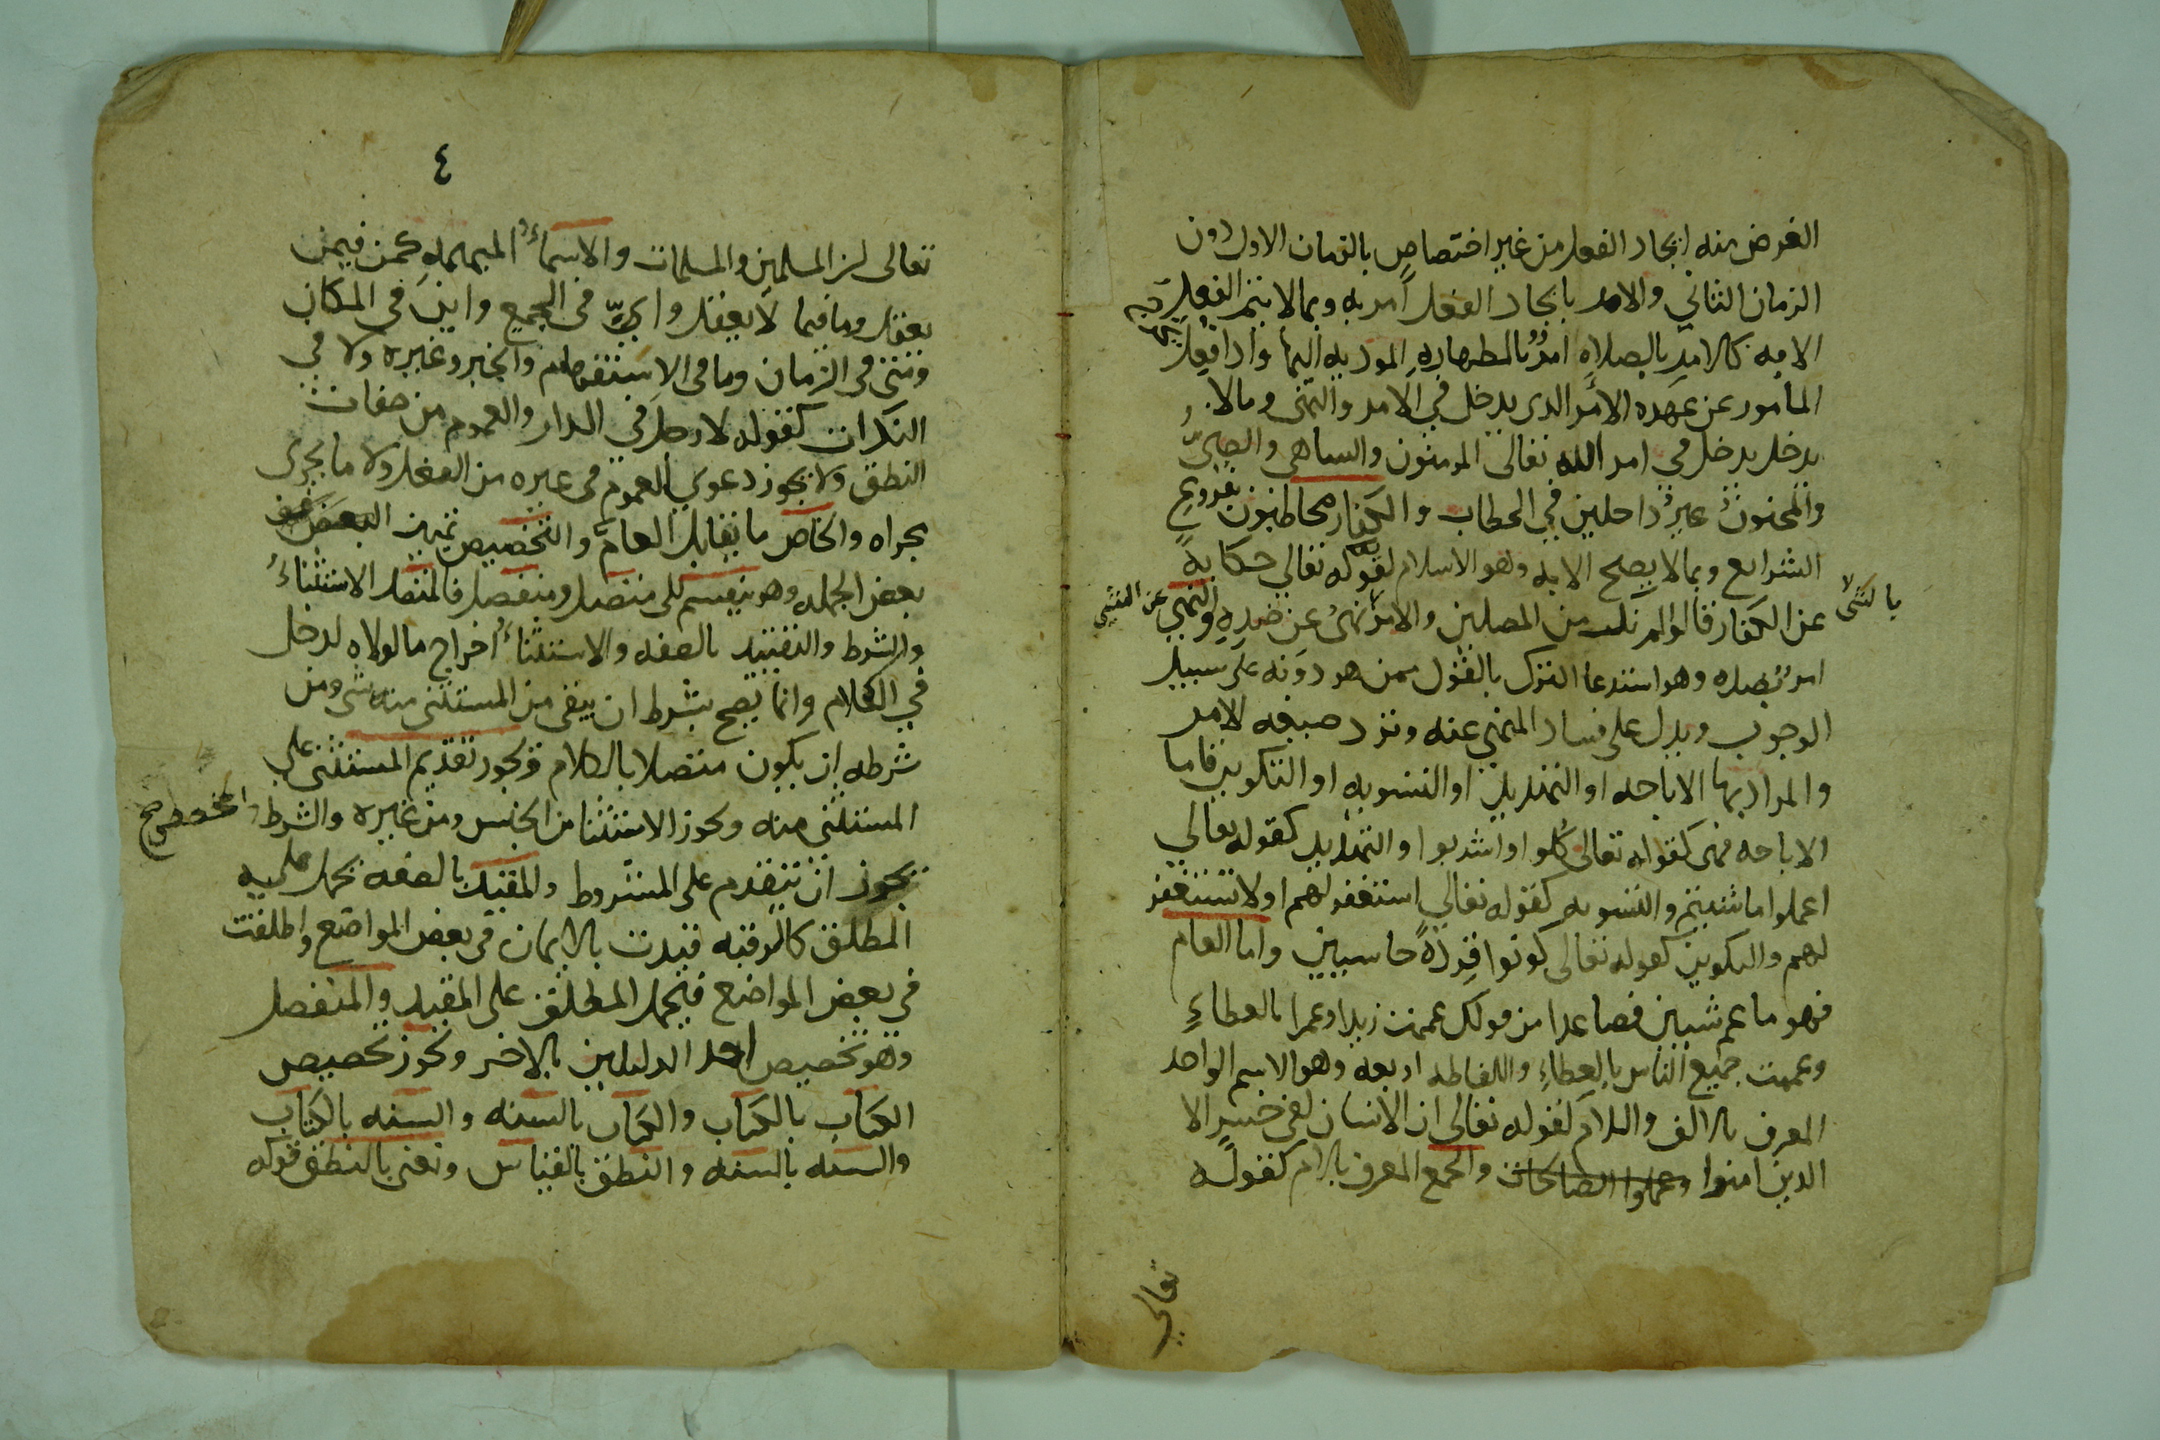 الغرض منه ايجاد الفعل من غير اختصاص بالزمان الاول دون
الزمان الثاني والامر بايجاد الفعل امر به وبما لا يتم الفعل
الا به كالامر بالصلاه امرٌ بالطهاره المودية اليها واذا فعل
المأمور عن عهده الأمر الذي يدخل في الامر والنهى ومالا
يدخل يدخل في امر الله تعالى المومنون والساهى والصبيُّ
والمجنونُ غيرُ داخلين في الخطاب والكفار مخاطبون بفروع
الشرايع وبما لا يصح الا به وهو الاسلام لقوله تعالي حكايةً
عن الكفار قالوا لم نك من المصلين والامرُ نهىٌ عن ضدِهِ والنهي
بالشئ
عن الشي
امرٌ بضده وهو استدعا الترك بالقول ممن هو دونه على سبيل
الوجوب ويدل على فساد المنهي عنه وترد صيغه الامر
والمراد بها الاباحه او التهديد او التسويه او التكوين فاما
الاباحه فهى كقوله تعالى كُلوا واشربوا والتهديد كقوله تعالي
اعملوا ما شيتم والتسويه كقوله تعالي استغفر لهم او لا تستغفر
لهم والتكوين كقوله تعالى كونوا قِردةً خاسيين واما العام
فهو ما عم شيين فصاعدا من قولك عممت زيدا وعمرا بالعطاءِ
وعممت جميع الناس بالعطاءِ والفاظه اربعه وهو الاسم الواحد
المعرف بالالف واللام لقوله تعالى ان الانسان لفي خسر الا
الذين امنوا وعملوا الصالحات والجمع المعرف باللام كقوله
تعالي
٤
تعالى ان المسلمين والمسلمات والاسماءُ المبهمه كمن فيمن
يعقل وما فيما لا يعقل واىٍّ فى الجميع واين فى المكان
ومتى فى الزمان وما فى الاستفهام والخبر وغيره ولا في
النكرات كقوله لا رجل في الدار والعموم من صفات
النطق ولا يجوز دعوى العموم فى غيره من الفعل ولا ما يجرى
مجراه والخاص ما يقابل العام والتخصيص تمييز
بعض الجمله وهو ينقسم الى متصل ومنفصل فالمتصل الاستثناءُ
والشرط والتقييد بالصفه والاستثناءُ اخراج ما لولاه لدخل
في الكلام وانما يصح بشرط ان يبقى من المستثنى منه شي ومن
شرطه ان يكون متصلا بالكلام ويجوز تقديم المستثنى على
المستثنى منه ويجوز الاستثنا من الجنس ومن غيره والشرط
المخصص صح
يجوز ان يتقدم على المشروط والمقيد بالصفه يحمل عليه
المطلق كالرقبه قيدت بالايمان فى بعض المواضع واطلقت
في بعض المواضع فيحمل المطلق على المقيد والمنفصل
وهو تخصيص احد الدليلين بالاخر ويجوز تخصيص
الكتاب بالكتاب والكتاب بالسنه والسنه بالكتاب
والسنه بالسنه والنطق بالقياس ونعنى بالنطق قوله